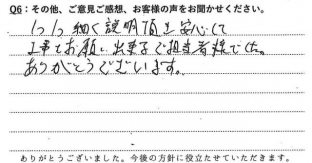 Q6：その他、ご意見ご感想、お客様の声をお聞かせください。
1つ1つ細く説明頂き安心して
工事をお願い出来るご担当者様でした。
ありがとうございます。
ありがとうございました。今後の方針に役立たせていただきます。